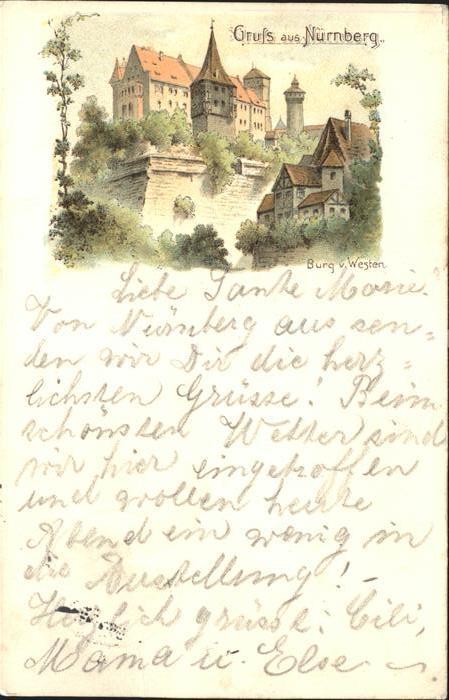 Gruſs aus Nürnberg.
Burg v. Westen
Liebe Tante Marie!
Von Nürnberg aus sen=
den wir Dir die herz=
lichsten Grüsse! Beim
schönsten Wetter sind
wir hier eingetroffen
und wollen heute
Abend ein wenig in
die Ausstellung! –
Herzlich grüsst: Cili,
Mama u. Else